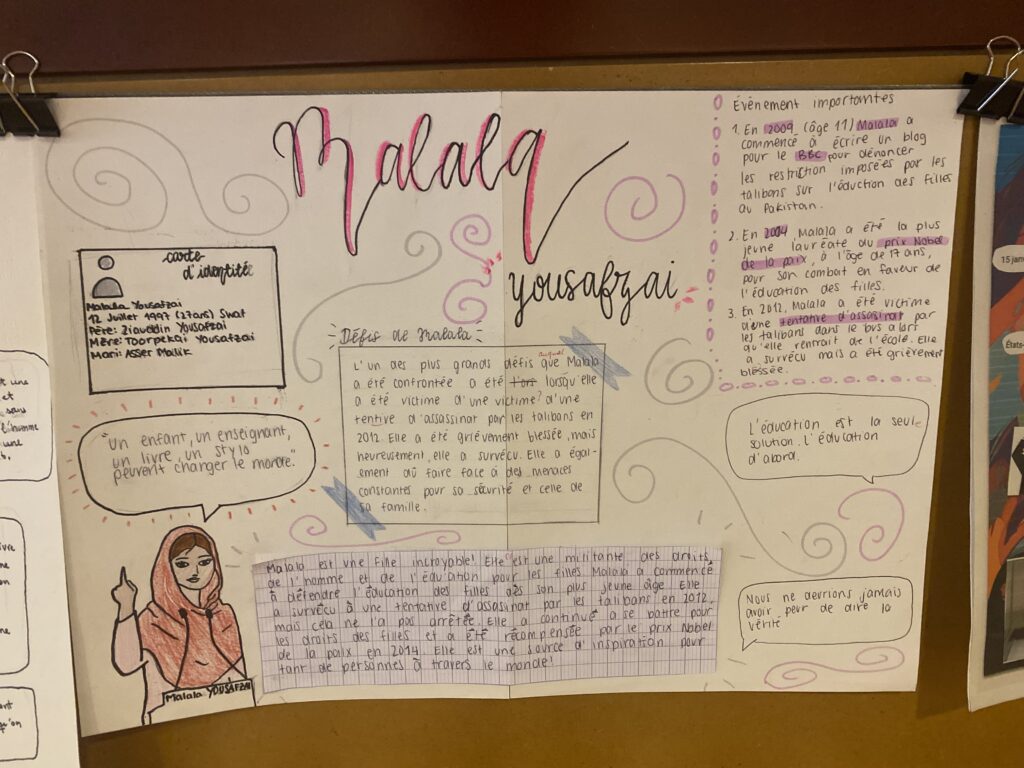 Malala
yousafzai
carte
d'identité
Malala Yousafzai
12 Juillet 1997 (27ans) Swat
Père: Ziauddin Yousafzai
Mère: Toorpekai Yousafzai
Mari: Asser Malik
"Un enfant, un enseignant,
un livre, un stylo
peuvent changer le monde."
Malala YOUSAFZAI
Défis de Malala
L'un des plus grands défis que Malala
a été confrontée a été lorsqu'elle
a été victime d'une victime? d'une
tentive d'assassinat par les talibans en
2012. Elle a été grièvement blessée, mais
heureusement, elle a survécu. Elle a égal-
ement dû faire face à des menaces
constantes pour sa sécurité et celle de
sa famille.
Malala est une fille incroyable! Elle est une militante des droits
de l'homme et de l'éducation pour les filles Malala a commencé
à défendre l'éducation des filles dès son plus jeune âge. Elle
a survécu à une tentative d'assasinat par les talibans en 2012,
mais cela ne l'a pas arrêtée. Elle a continué a se battre pour
les droits des filles et a été récompensée par le prix Nobel
de la paix en 2014. Elle est une source d'inspiration pour
tant de personnes à travers le monde!
Événement importantes
1. En 2009 (âge 11) Malala a
commencé à écrire un blog
pour le BBC pour dénoncer
les restriction imposées par les
talibans sur l'éduction des filles
au Pakistan.
2. En 2004 Malala a été la plus
jeune lauréate du prix Nobel
de la paix, à l'âge de 17 ans,
pour son combat en faveur de
l'éducation des filles.
3. En 2012, Malala a été victime
d'une tentative d'assasinat par
les talibans dans le bus alors
qu'elle rentrait de l'école. Elle
a survécu mais a été grièvement
blessée.
L'éducation est la seule
solution. L'éducation
d'abord.
Nous ne devrions jamais
avoir peur de dire la
vérité
15 jan
États-